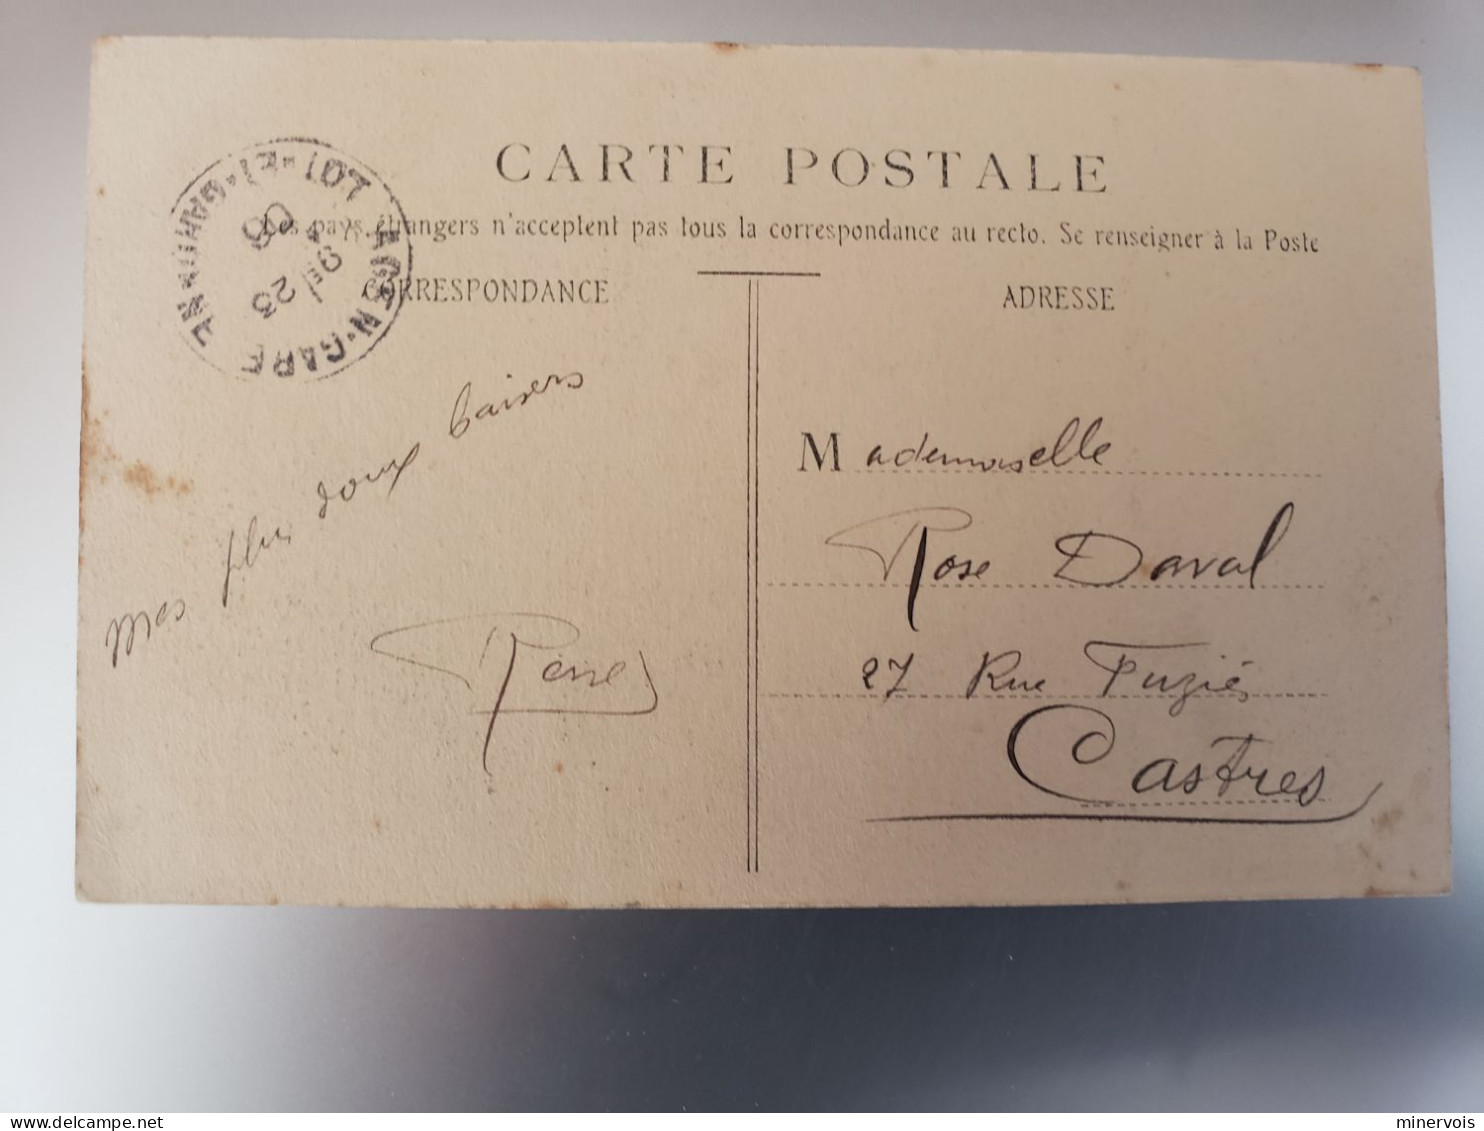 CARTE POSTALE
Les pays étrangers n'acceptent pas tous la correspondance au recto. Se renseigner à la Poste
CORRESPONDANCE
ADRESSE
AGEN-GARE
LOT-ET-GARONNE
23
09
Mes plus doux baisers
Mademoiselle
Rose Daval
27 Rue Fuziés
Castres
minervois